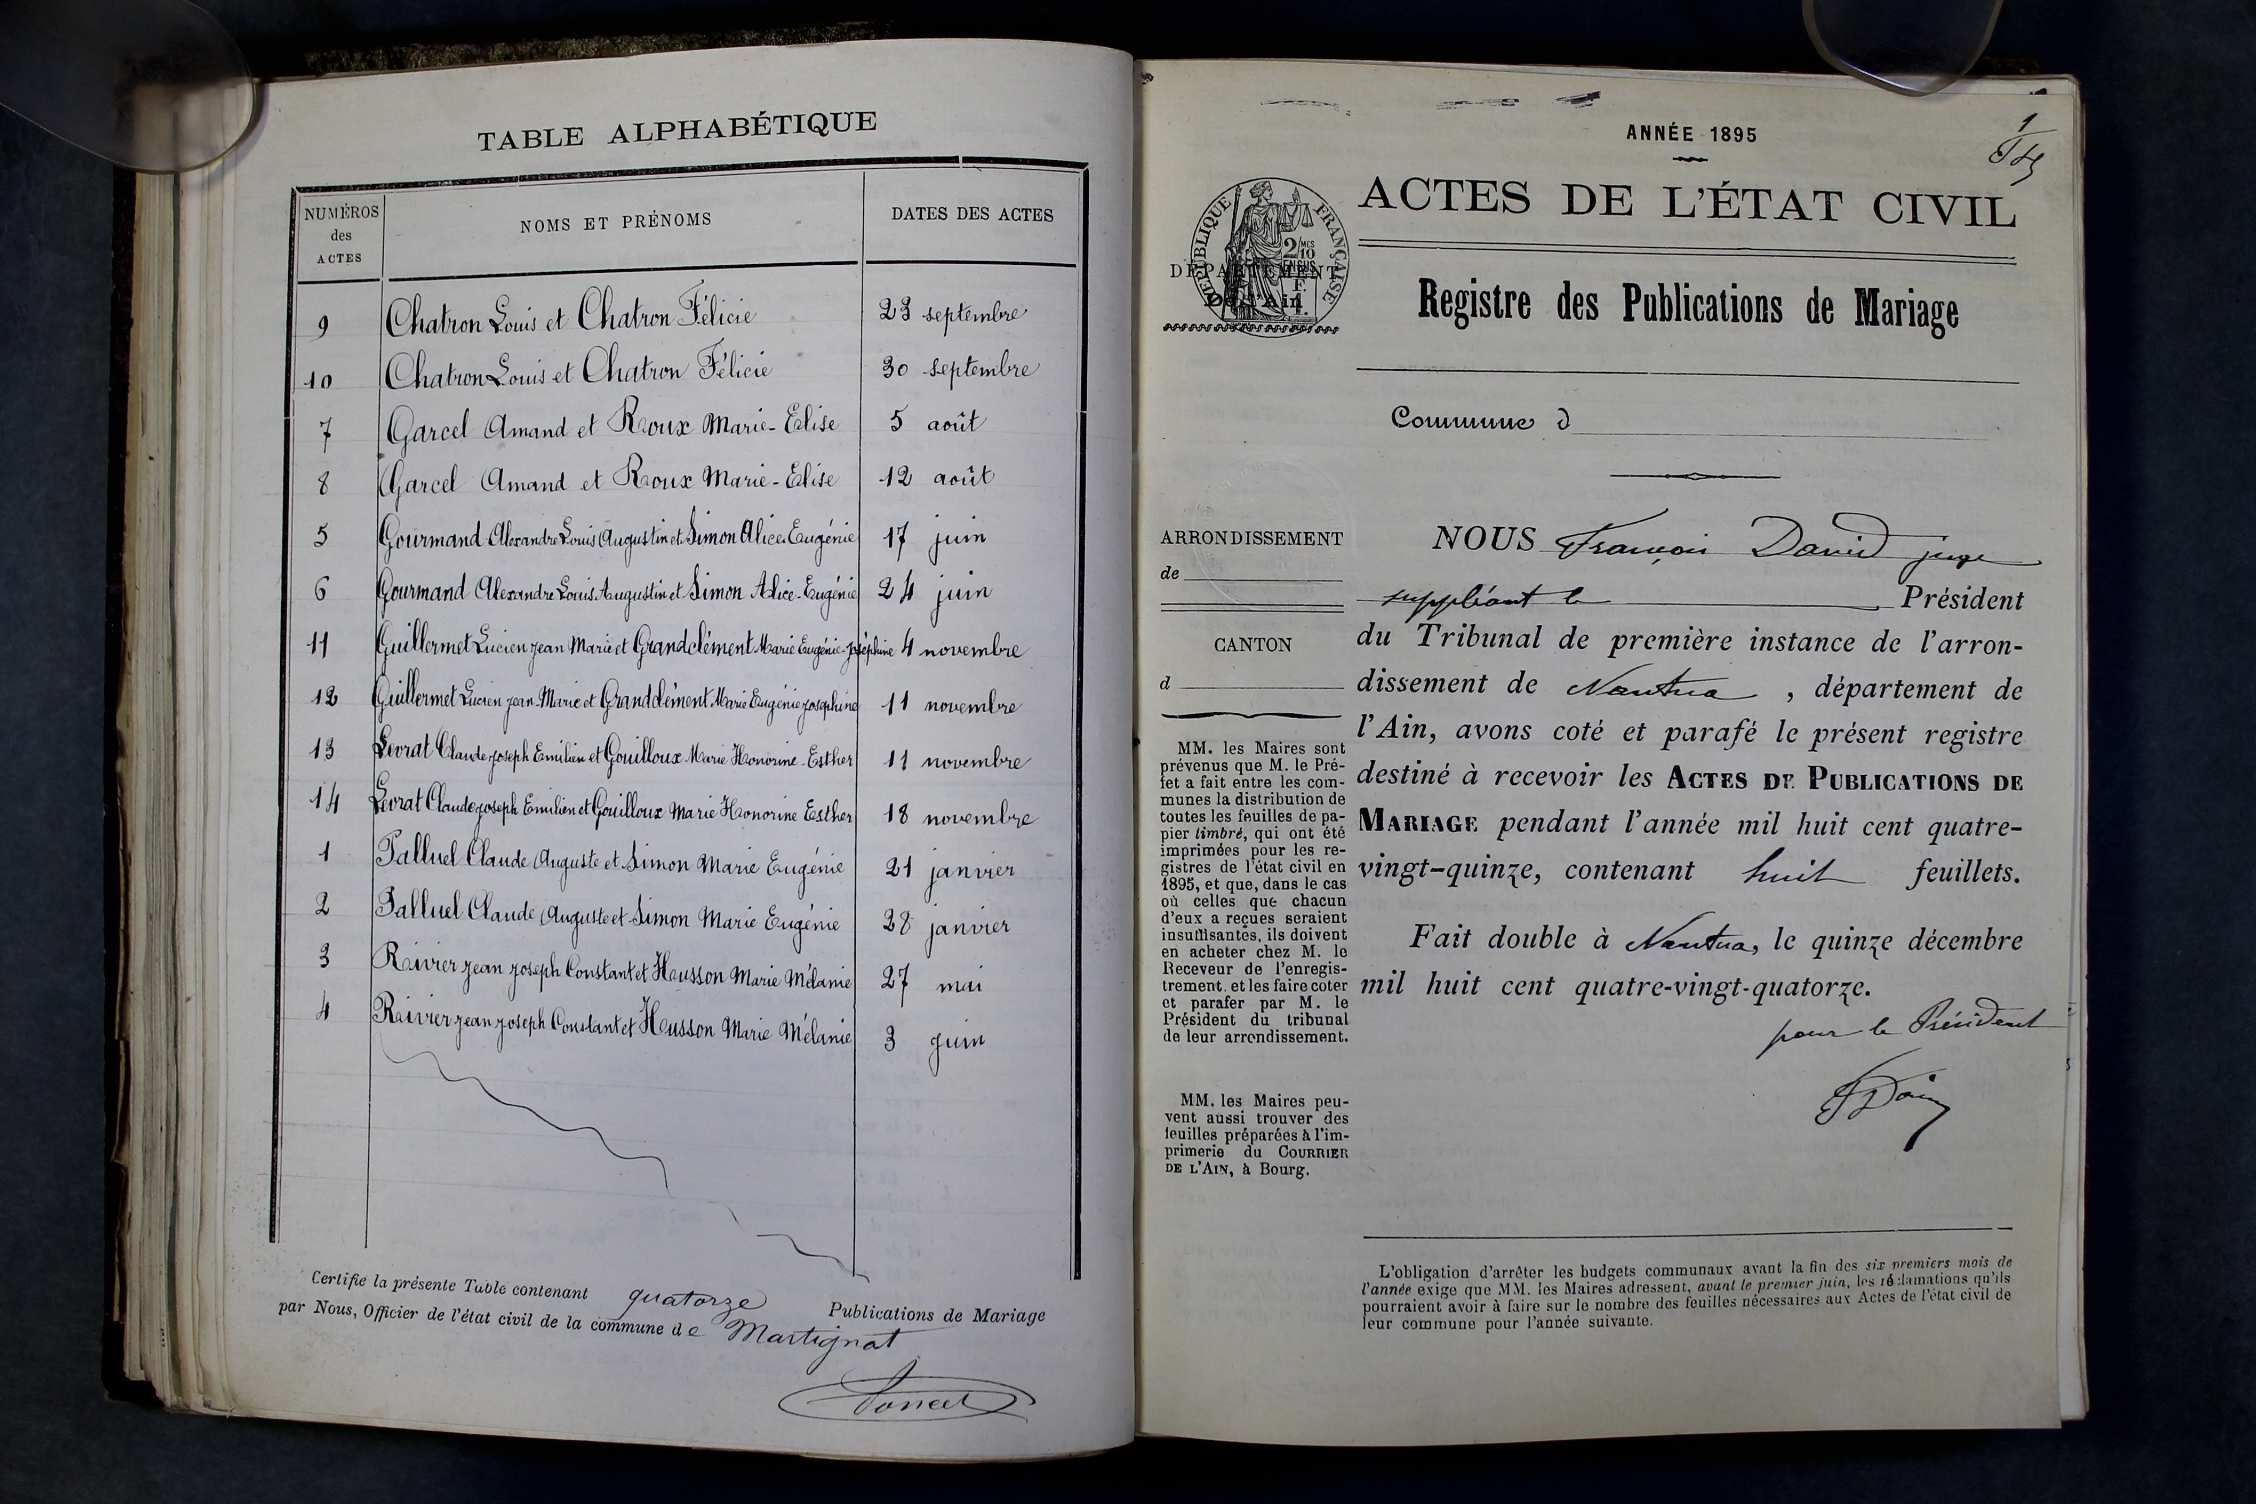 TABLE ALPHABÉTIQUE
NUMÉROS
des
ACTES
NOMS ET PRÉNOMS
DATES DES ACTES
9 Chatron Louis et Chatron Félicie 23 septembre
10 Chatron Louis et Chatron Félicie 30 septembre
7 Garcel Amand et Roux Marie-Elise 5 août
8 Garcel Amand et Roux Marie-Elise 12 août
5 Gourmand Alexandre Louis Augustin et Simon Alice Eugénie 17 juin
6 Gourmand Alexandre Louis Augustin et Simon Alice-Eugénie 24 juin
11 Guillermet Lucien Jean Marie et Grandclément Marie Eugénie-Joséphine 4 novembre
12 Guillermet Lucien Jean-Marie et Grandclément Marie Eugénie Joséphine 11 novembre
13 Levrat Claude Joseph Emilien et Gouilloux Marie Honorine-Esther 11 novembre
14 Levrat Claude Joseph Emilien et Gouilloux Marie Honorine Esther 18 novembre
1 Palluel Claude Auguste et Simon Marie Eugénie 21 janvier
2 Palluel Claude Auguste et Simon Marie Eugénie 28 janvier
3 Rivier Jean Joseph Constant et Husson Marie Mélanie 27 mai
4 Rivier Jean Joseph Constant et Husson Marie Mélanie 3 juin
Certifie la présente Table contenant quatorze Publications de Mariage
par Nous, Officier de l'état civil de la commune de Martignat
ANNÉE 1895
1
ACTES DE L'ÉTAT CIVIL
RÉPUBLIQUE FRANÇAISE
2/10
MES
EN SUS
DÉPARTEMENT
De l'Ain
Registre des Publications de Mariage
Commune d
ARRONDISSEMENT
de
CANTON
d
MM. les Maires sont
prévenus que M. le Pré-
fet a fait entre les com-
munes la distribution de
toutes les feuilles de pa-
pier timbré, qui ont été
imprimées pour les re-
gistres de l'état civil en
1895, et que, dans le cas
où celles que chacun
d'eux a reçues seraient
insuffisantes, ils doivent
en acheter chez M. le
Receveur de l'enregis-
trement. et les faire coter
et parafer par M. le
Président du tribunal
de leur arrondissement.
MM. les Maires peu-
vent aussi trouver des
feuilles préparées à l'im-
primerie du COURRIER
DE L'AIN, à Bourg.
NOUS François David juge
suppléant le Président
du Tribunal de première instance de l'arron-
dissement de Nantua, département de
l'Ain, avons coté et parafé le présent registre
destiné à recevoir les ACTES DE PUBLICATIONS DE
MARIAGE pendant l'année mil huit cent quatre-
vingt-quinze, contenant huit feuillets.
Fait double à Nantua, le quinze décembre
mil huit cent quatre-vingt-quatorze.
pour le Président
L'obligation d'arrêter les budgets communaux avant la fin des six premiers mois de
l'année exige que MM. les Maires adressent, avant le premier juin, les réclamations qu'ils
pourraient avoir à faire sur le nombre des feuilles nécessaires aux Actes de l'état civil de
leur commune pour l'année suivante.